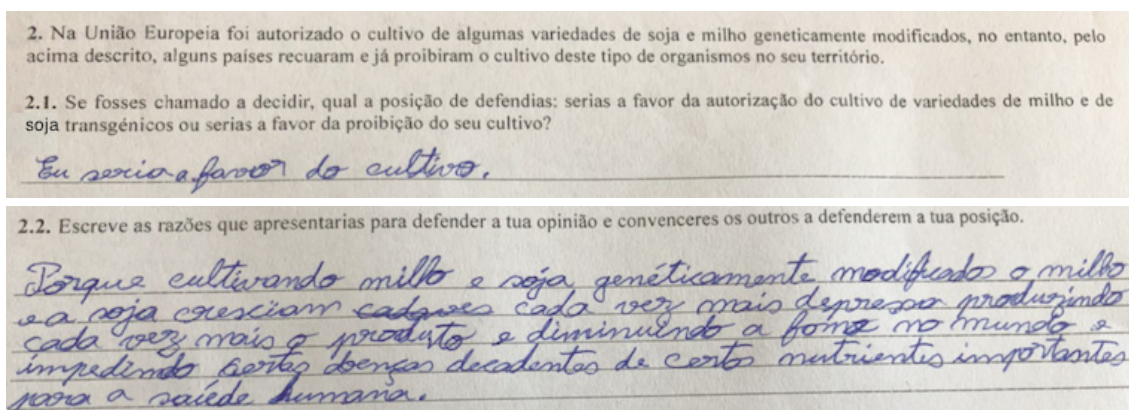 2. Na União Europeia foi autorizado o cultivo de algumas variedades de soja e milho geneticamente modificados, no entanto, pelo
acima descrito, alguns países recuaram e já proibiram o cultivo deste tipo de organismos no seu território.
2.1. Se fosses chamado a decidir, qual a posição de defendias: serias a favor da autorização do cultivo de variedades de milho e de
soja transgénicos ou serias a favor da proibição do seu cultivo?
Eu seria a favor do cultivo.
2.2. Escreve as razões que apresentarias para defender a tua opinião e convenceres os outros a defenderem a tua posição.
Porque cultivando milho e soja genéticamente modificados o milho
e a soja cresciam cada vez mais depressa produzindo
cada vez mais o produto e diminuindo a fome no mundo e
impedindo certas doenças decadentes de certos nutrientes importantes
para a saúde humana.